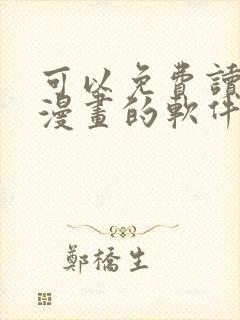 可以免費讀
漫畫的軟件
鄭橋生